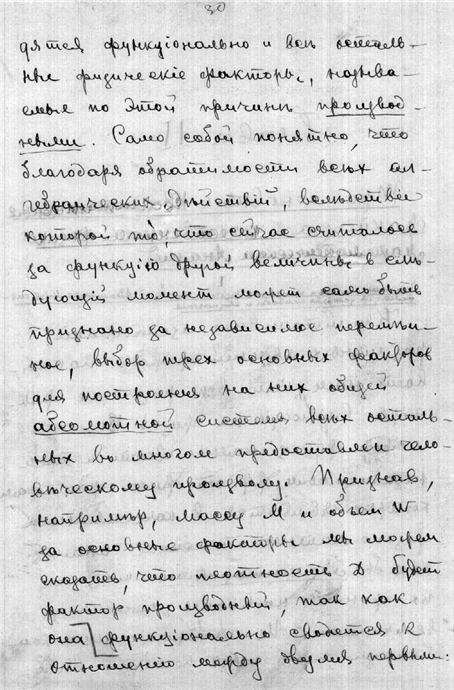 30
дятся функціонально и всѣ осталь-
ные физическіе факторы, называ-
емые по этой причинѣ производ-
ными. Само собой понятно, что
благодаря обратимости всѣх ал-
гебраических дѣйствій, вслѣдствіе
которой то, что сейчас считалось
за функцію другой величины в слѣ-
дующій момент может само быть
признано за независимое перемѣн-
ное, выбор трех основных факторов
для построения на них общей
абсолютной системы всѣх осталь-
ных во многом предоставлен чело-
вѣческому произволу. Признав,
напримѣр, массу M и объем W
за основные факторы мы можем
сказать, что плотность D будет
фактор производный, так как
она функціонально сводится к
отношению между двумя первыми: